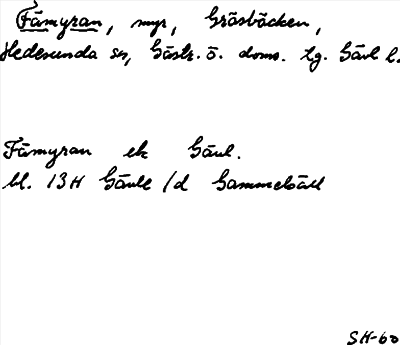 Fämyran, myr, Gräsbäcken,
Hedesunda sn, Gästr. ö. doms. lg. Gävl l.
Fämyran ek Gävl.
bl. 13H Gävle /d Gammelsäll
SH-60